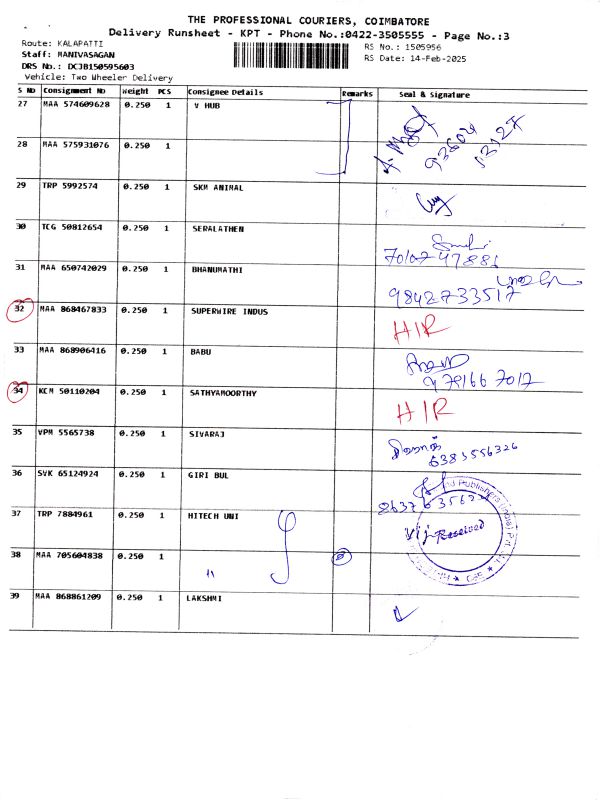 THE PROFESSIONAL COURIERS, COIMBATORE
Delivery Runsheet - KPT - Phone No.:0422-3505555 - Page No.:3
Route: KALAPATTI RS No.: 1505956
Staff: MANIVASAGAN RS Date: 14-Feb-2025
DRS No.: DCJB150595603
Vehicle: Two Wheeler Delivery
S No Consignment No Weight PCS Consignee Details Remarks Seal & Signature
27 MAA 574609628 0.250 1 V HUB
28 MAA 575931076 0.250 1
29 TRP 5992574 0.250 1 SKM ANIMAL
30 TCG 50812654 0.250 1 SERALATHEN
7010747881
31 MAA 650742029 0.250 1 BHANUMATHI
9842733517
32 MAA 868467833 0.250 1 SUPERWIRE INDUS HIR
33 MAA 868906416 0.250 1 BABU
9791667017
34 KCM 50110204 0.250 1 SATHYAMOORTHY HIR
35 VPM 5565738 0.250 1 SIVARAJ
6383556326
36 SVK 65124924 0.250 1 GIRI BUL
37 TRP 7884961 0.250 1 HITECH UNI Received
38 MAA 705604838 0.250 1 "
39 MAA 868861209 0.250 1 LAKSHMI